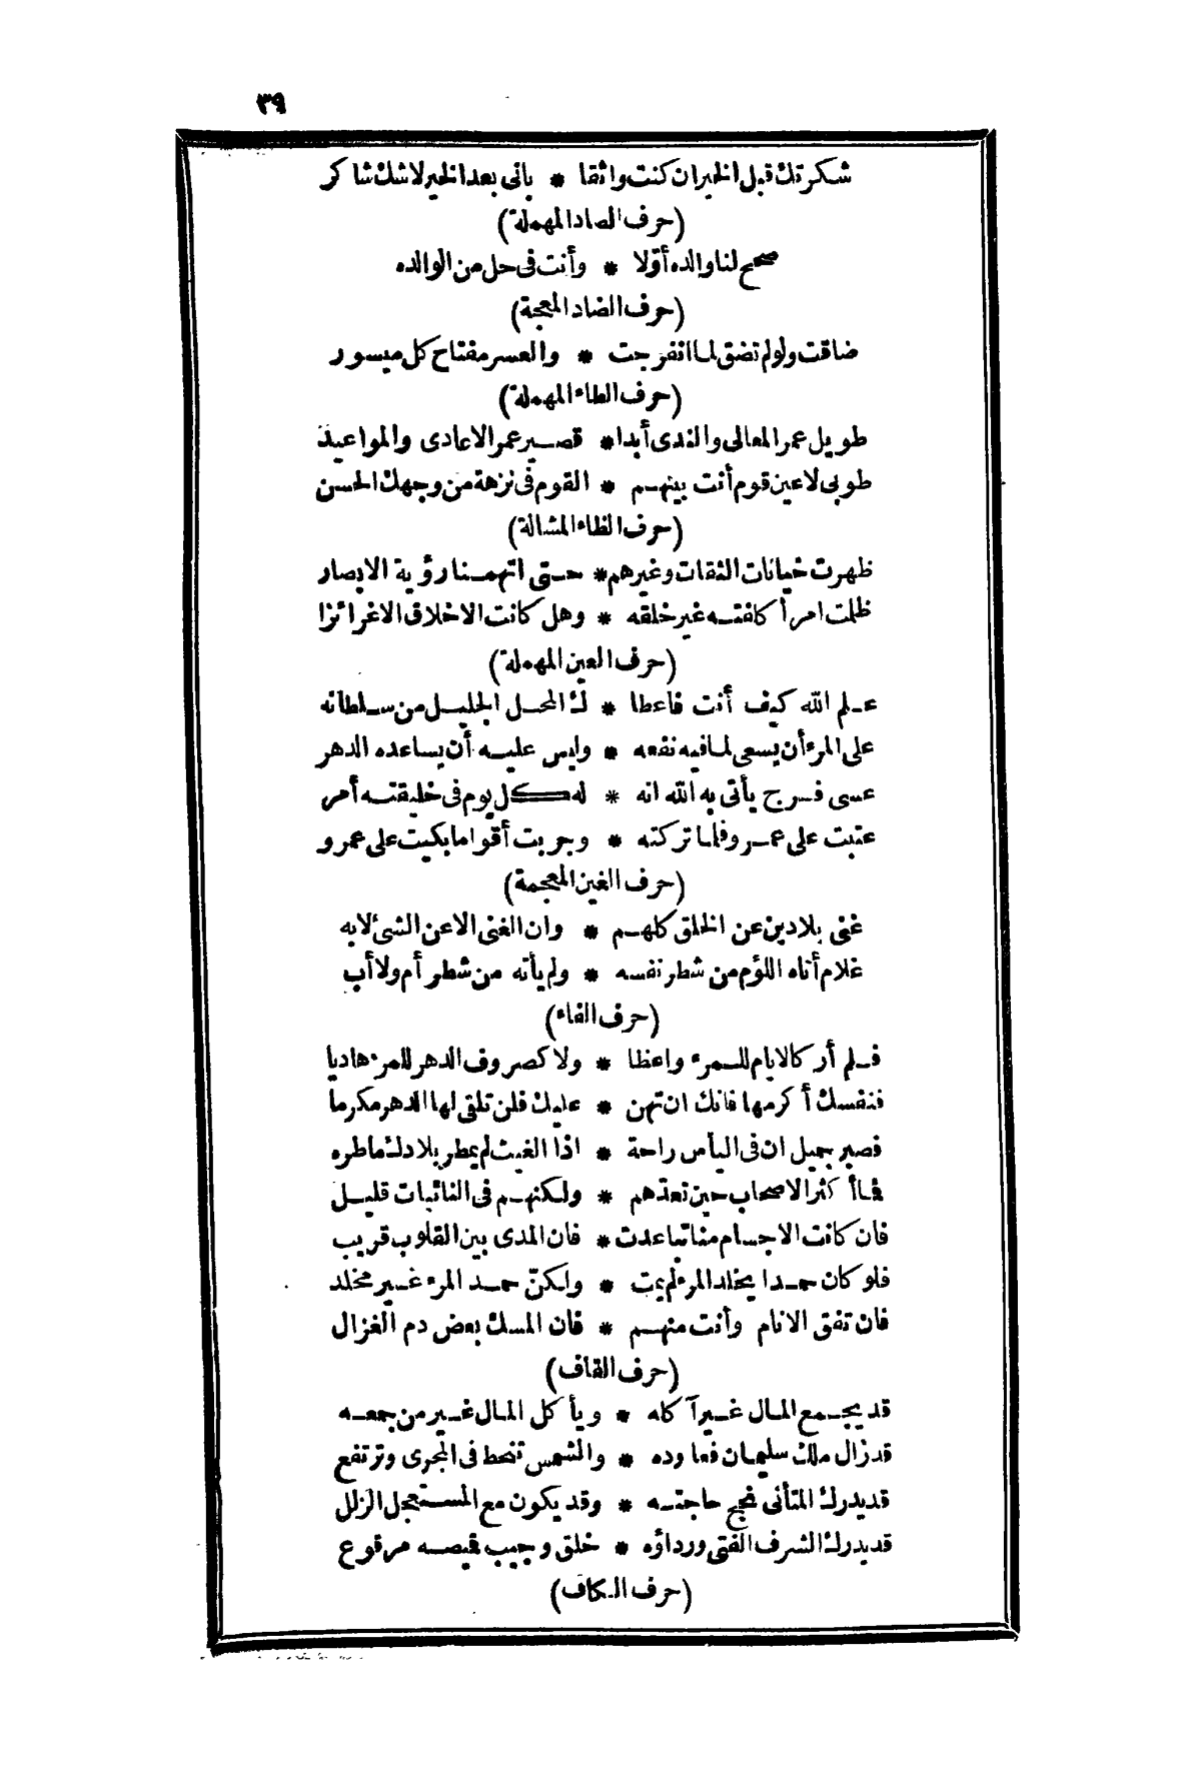 ٣٩
شكرتك قبل الخيران كنت واثقا * بانى بعد الخير لاشك شاكر
(حرف الصاد المهملة)
صحح لنا والده أوّلا * وأنت فى حل من الوالده
(حرف الضاد المعجمة)
ضاقت ولولم تضق لما انفرجت * والعسر مفتاح كل ميسور
(حرف الطاء المهملة)
طويل عمر المعالى والندى أبدا * قصير عمر الاعادى والمواعيد
طوبى لاعين قوم أنت بينهم * القوم فى نزهة من وجهك الحسن
(حرف الظاء المشالة)
ظهرت خيانات الثقات وغيرهم * حتى اتهمنا رؤية الابصار
ظلمت امرأ كلفته غير خلقه * وهل كانت الاخلاق الاغرائزا
(حرف العين المهملة)
علم الله كيف أنت فاعطا * ك المحل الجليل من سلطانه
على المرء أن يسعى لمافيه نفعه * وليس عليه أن يساعده الدهر
عسى فرج يأتى به الله انه * له كل يوم فى خليقته أمر
عتبت على عمرو فلما تركته * وجربت أقواما بكيت على عمرو
(حرف الغين المعجمة)
غنى بلادين عن الخلق كلهم * وان الغنى الاعن الشئ لابه
غلام أتاه اللؤم من شطر نفسه * ولم يأته من شطر أم ولا أب
(حرف الفاء)
فلم أر كالايام للمرء واعظا * ولا كصروف الدهر للمرء هاديا
فنفسك أكرمها فانك ان تهن * عليك فلن تلقى لها الدهر مكرما
فصبر جميل ان فى اليأس راحة * اذا الغيث لم يمطر بلادك ماطره
فما أكثر الاصحاب حين تعدّهم * ولكنهم فى النائبات قليل
فان كانت الاجسام منا تباعدت * فان المدى بين القلوب قريب
فلو كان حمدا يخلد المرء لم يمت * ولكنّ حمد المرء غير مخلد
فان تفق الانام وأنت منهم * فان المسك بعض دم الغزال
(حرف القاف)
قد يجمع المال غير آكله * ويأكل المال غير من جمعه
قد زال ملك سليمان فعاوده * والشمس تنحط فى المجرى وترتفع
قديدرك المتأنى نجح حاجته * وقد يكون مع المستعجل الزلل
قديدرك الشرف الفتى ورداؤه * خلق وجيب قميصه مرقوع
(حرف الكاف)